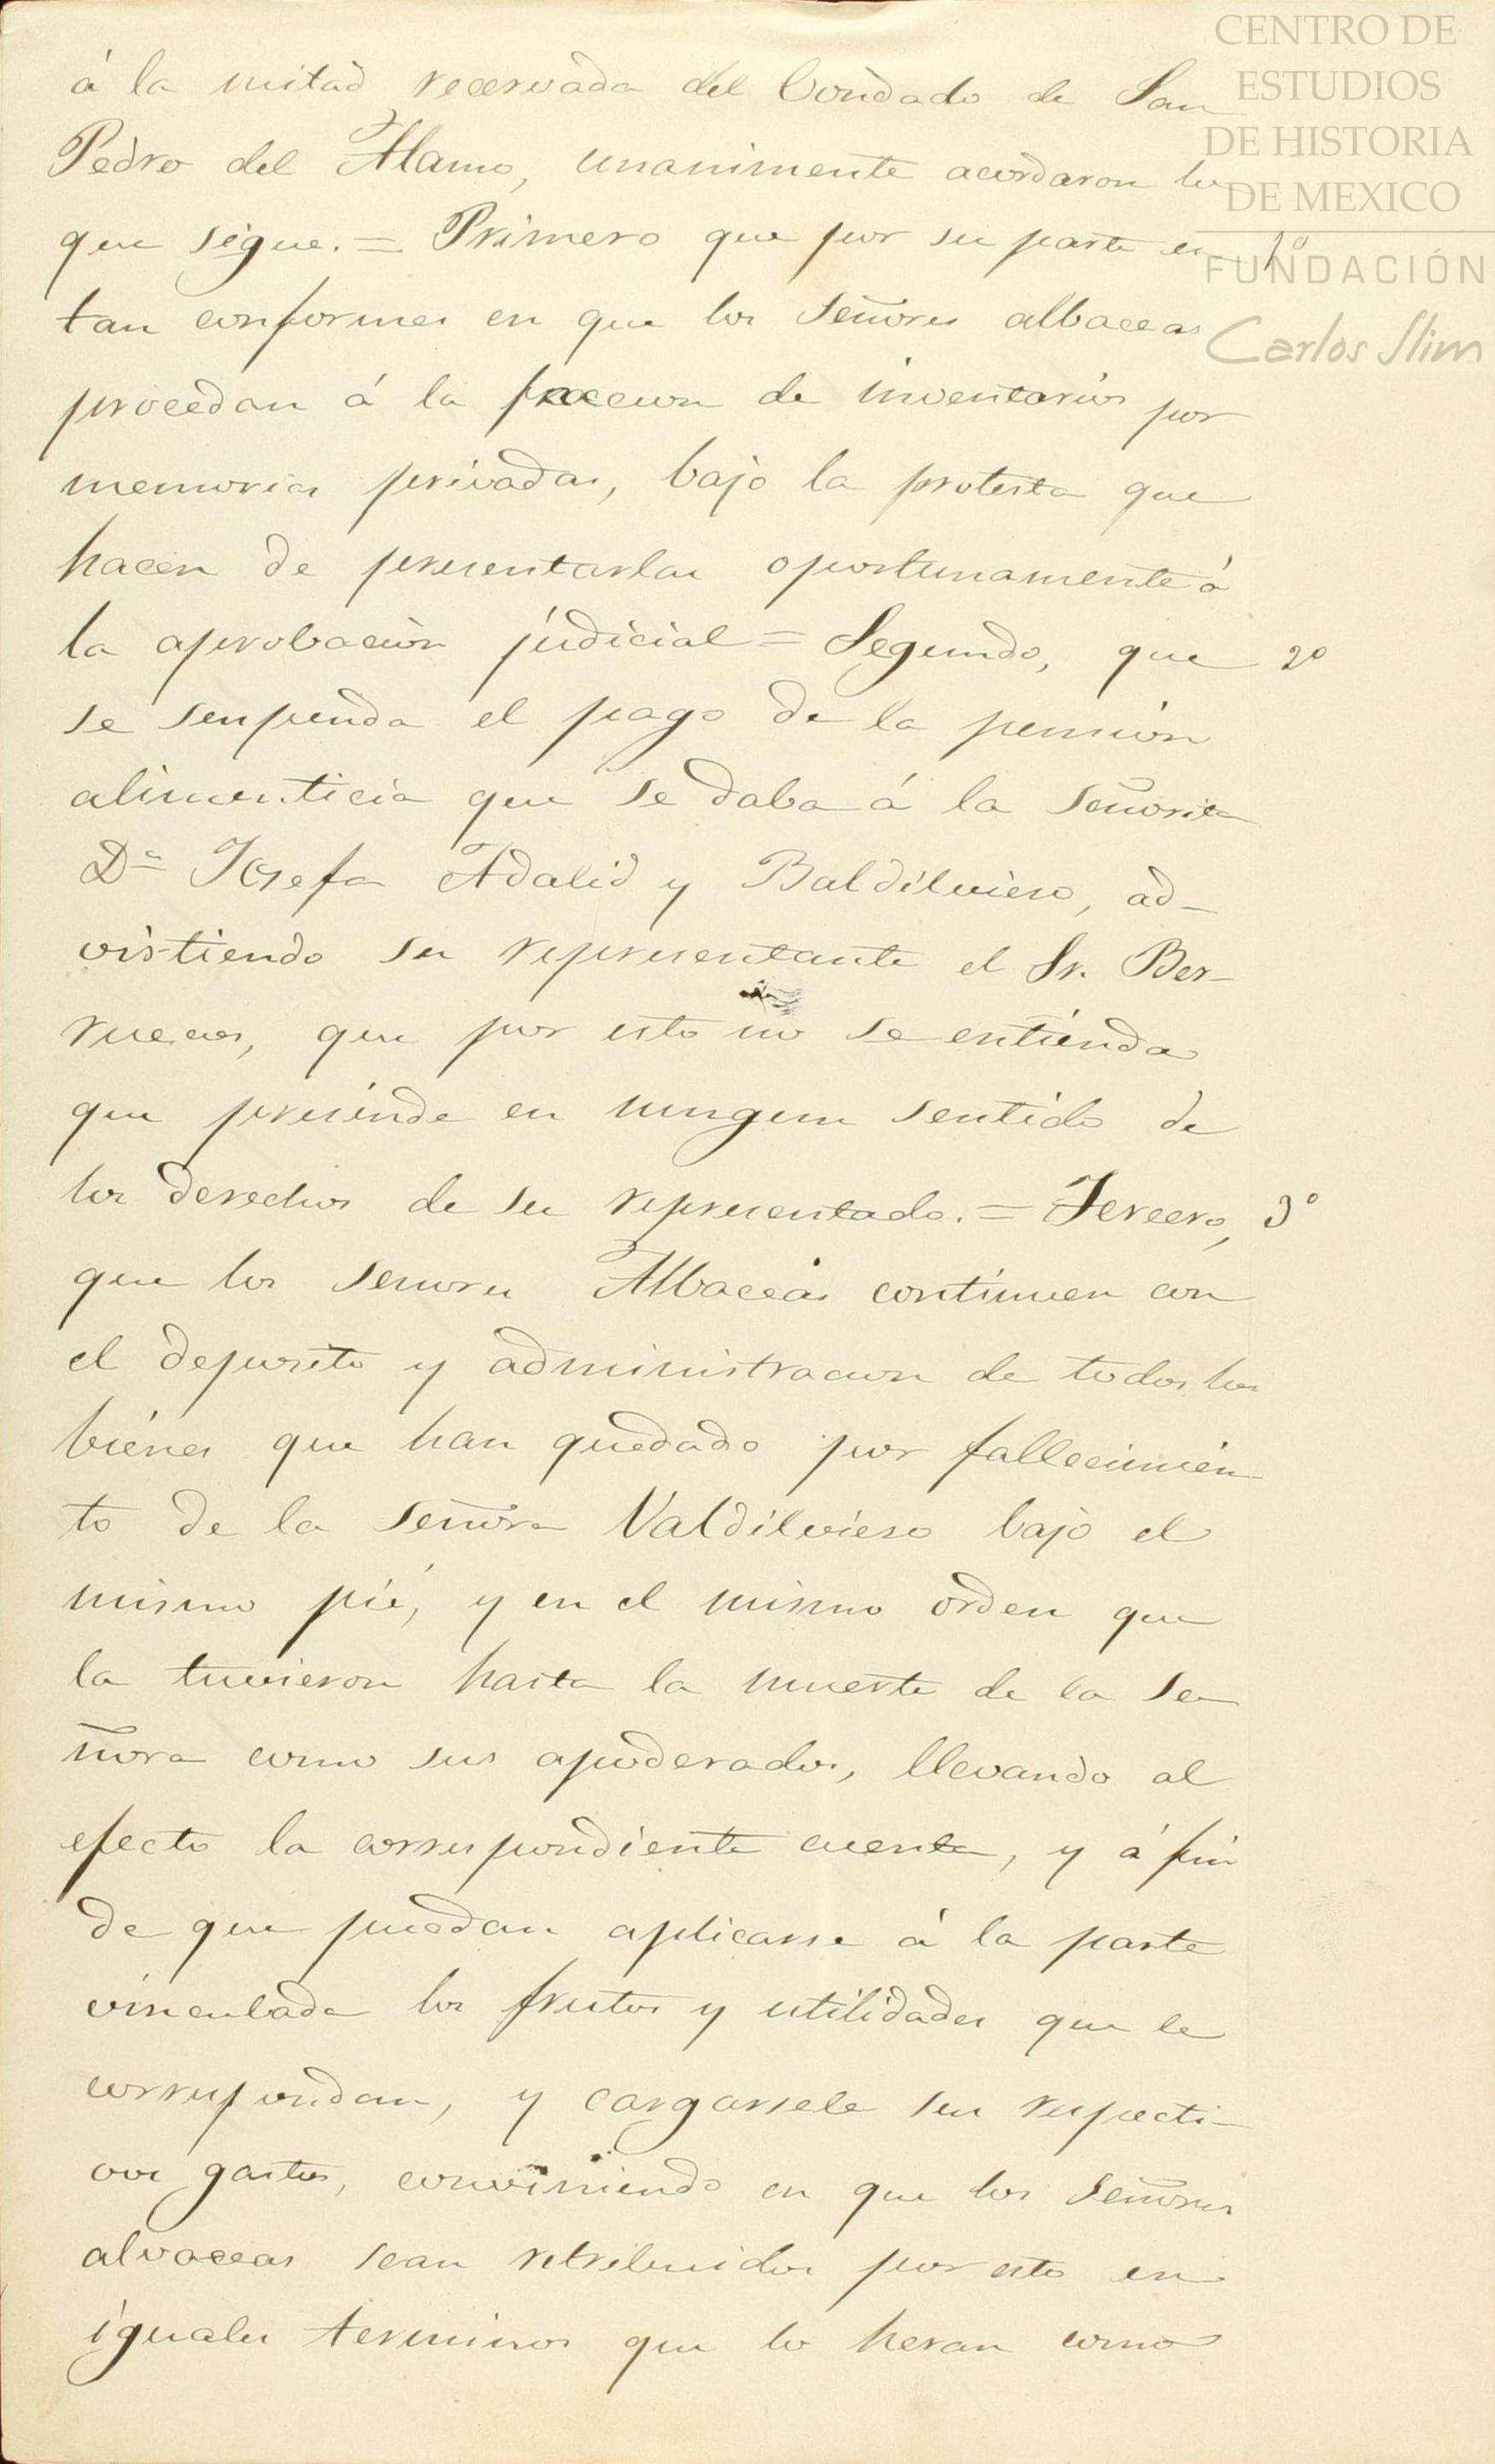 á la mitad recervada del Condado de San
Pedro del Alamo, unanimente acordaron lo
que sigue. = Primero que por su parte es 1º
tan conformes en que los Señores albaceas
procedan á la faccion de inventarios por
memorias privadas, bajo la protesta que
hacen de presentarlas oportunamente á
la aprobacion judicial = Segundo, que 2º
se suspenda el pago de la pension
alimenticia que se daba á la Señorita
Dª Josefa Adalid y Baldilvieso, ad-
virtiendo su representante el Sr. Ber-
ruecos, que por esto no se entienda
que presinde en ningun sentido de
los derechos de su representado. = Tercero, 3º
que los Senores Albaceas continuen con
el deposito y administracion de todos los
bienes que han quedado por fallecimien
to de la Señora Valdilvieso bajo el
mismo pié, y en el mismo orden que
la tuvieron hasta la muerte de la Se
ñora como sus apoderados, llevando al
efecto la correspondiente cuenta, y á fin
de que puedan aplicarse á la parte
vinculada los frutos y utilidades que le
correspondan, y cargarsele sus respecti-
vos gastos, conviniendo en que los Señores
alvaceas sean retribuidos por esto en
iguales terminos que lo heran como
CENTRO DE
ESTUDIOS
DE HISTORIA
DE MEXICO
FUNDACIÓN
Carlos Slim